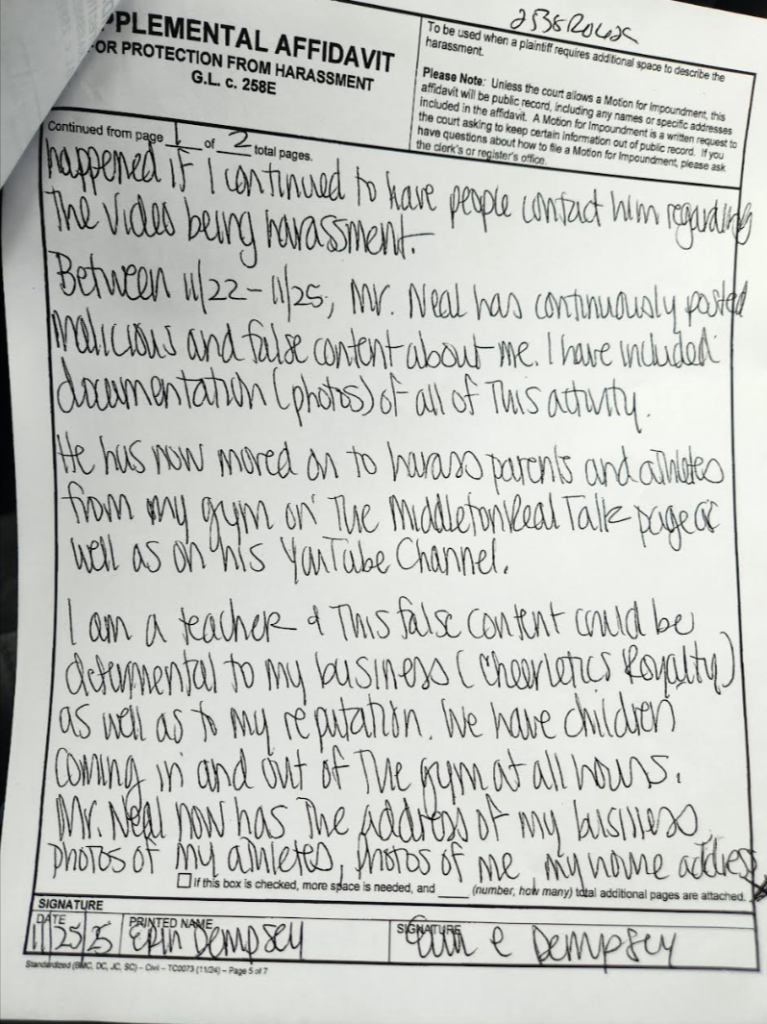 PPLEMENTAL AFFIDAVIT
OR PROTECTION FROM HARASSMENT
G.L. c. 258E
To be used when a plaintiff requires additional space to describe the
harassment.
Please Note: Unless the court allows a Motion for Impoundment, this
affidavit will be public record, including any names or specific addresses
included in the affidavit. A Motion for Impoundment is a written request to
the court asking to keep certain information out of public record. If you
have questions about how to file a Motion for Impoundment, please ask
the clerk's or register's office.
Continued from page 1 of 2 total pages.
happened if I continued to have people contact him regarding
The video being harassment.
Between 11/22-11/25, Mr. Neal has continuously posted
malicious and false content about me. I have included
documentation (photos) of all of This activity.
He has now moved on to harass parents and athletes
from my gym on The Middleton Real Talk page as
well as on his YouTube Channel.
I am a teacher & This false content could be
deteremental to my business (Cheerletics Royalty)
as well as to my reputation. We have children
coming in and out of The gym at all hours.
Mr. Neal now has The address of my business,
photos of my athletes, photos of me, my home address
If this box is checked, more space is needed, and ____ (number, how many) total additional pages are attached.
SIGNATURE
DATE PRINTED NAME SIGNATURE
11/25/25 Erin Dempsey Erin e Dempsey
Standardized (BMC, DC, JC, SC) – Civil – TC0073 (11/24) – Page 5 of 7